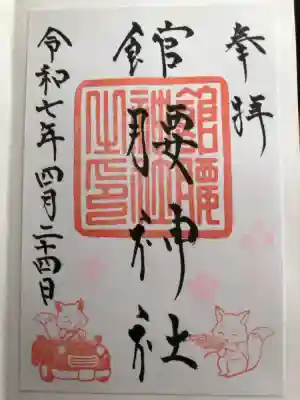 奉拝
館腰神社
館腰神社之印
令和七年四月二十四日